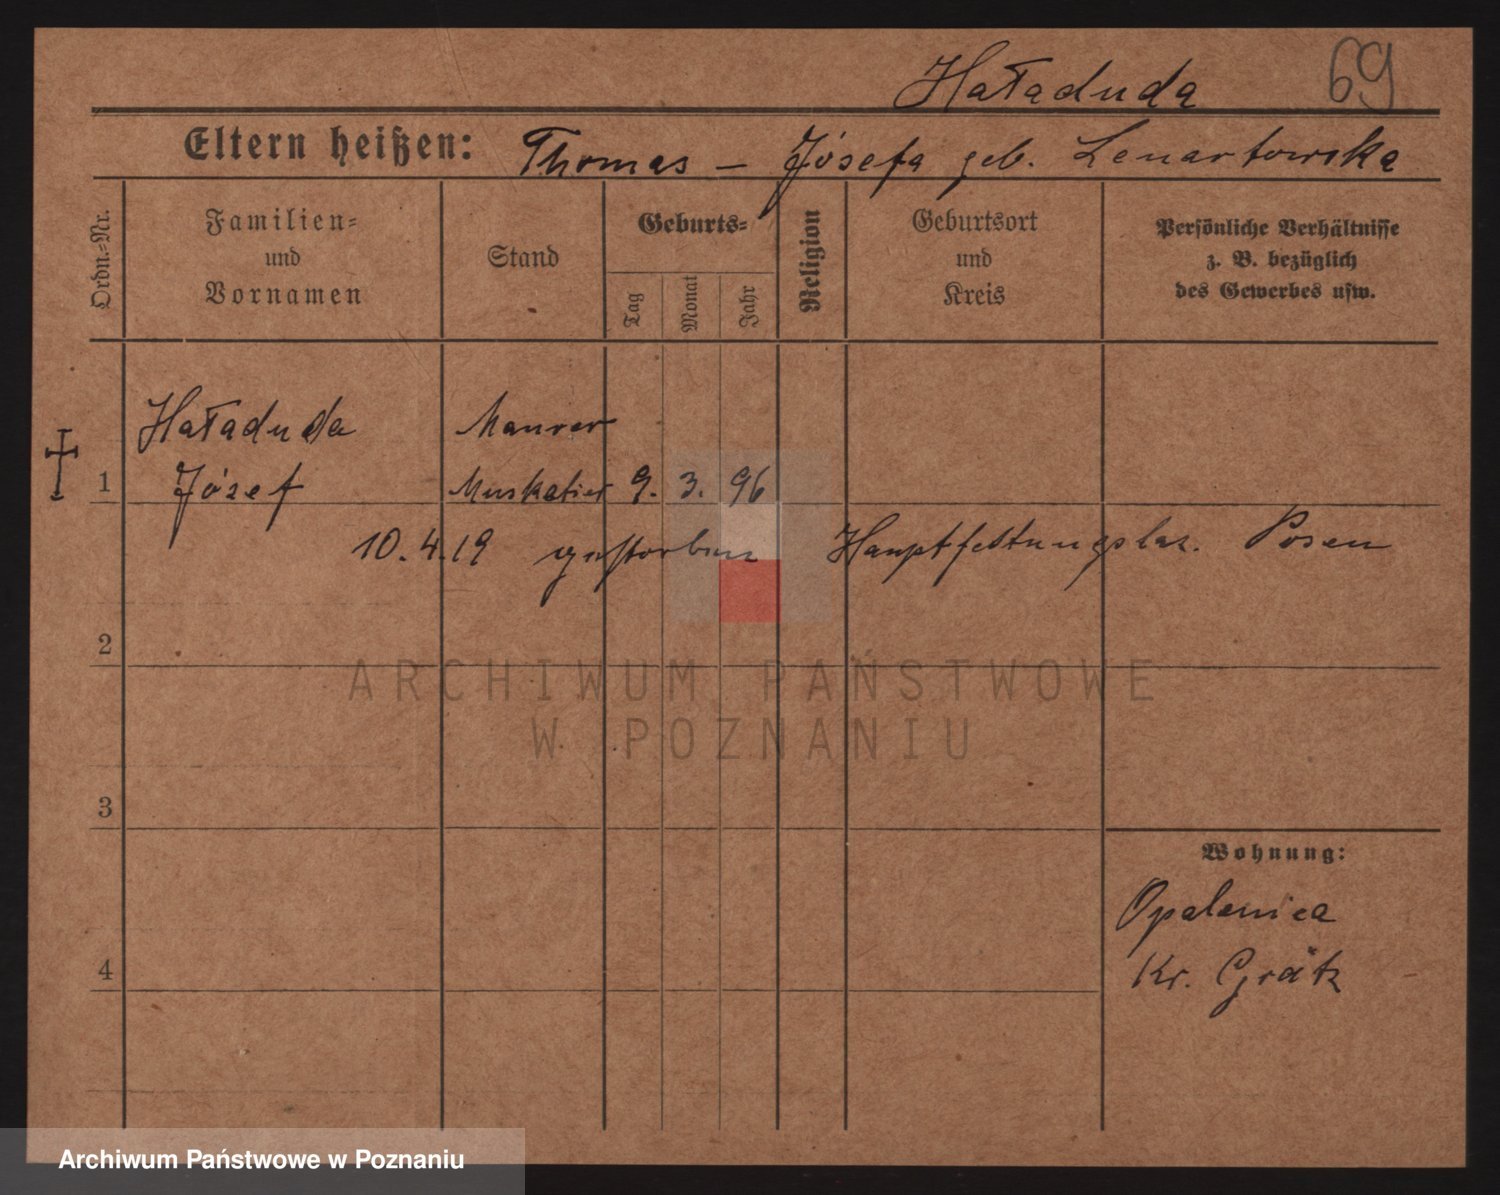 Haładuda 69
Eltern heißen: Thomas – Józefa geb. Lenartowska
Ordn.-Nr.
Familien-
und
Vornamen
Stand
Geburts-
Tag
Monat
Jahr
Religion
Geburtsort
und
Kreis
Persönliche Verhältnisse
z. B. bezüglich
des Gewerbes usw.
Haładuda Maurer
1 Józef Muskatier 9. 3. 96
10. 4. 19 gestorben Hauptfestungslaz. Posen
2
ARCHIWUM PAŃSTWOWE
W POZNANIU
3
Wohnung:
Opalenica
4 Kr. Grätz
Archiwum Państwowe w Poznaniu